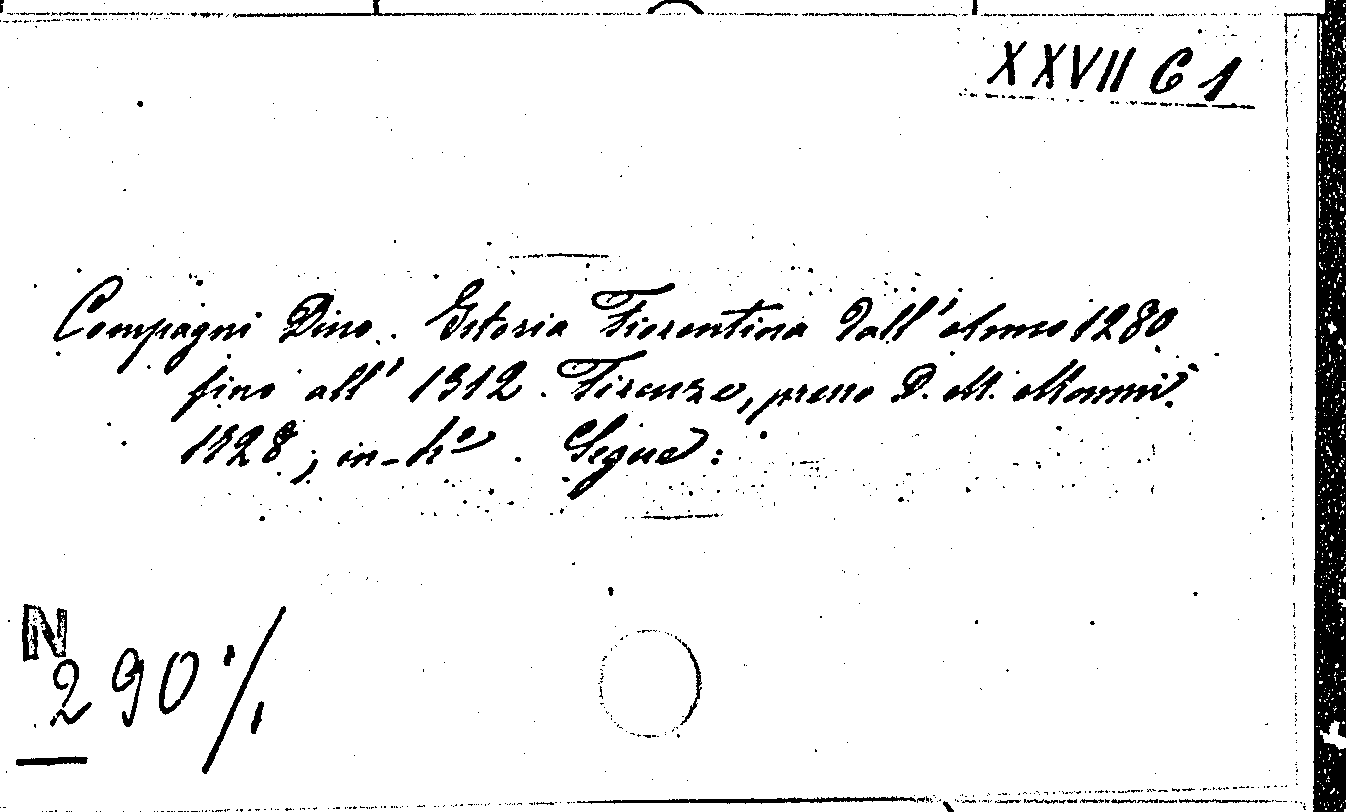 XXVII C 1
Compagni Dino. Istoria Fiorentina dall'Anno 1280
fino all' 1312. Firenze, presso D. M. Manni
1728; in-4º. Segue:
N
290 ·/.